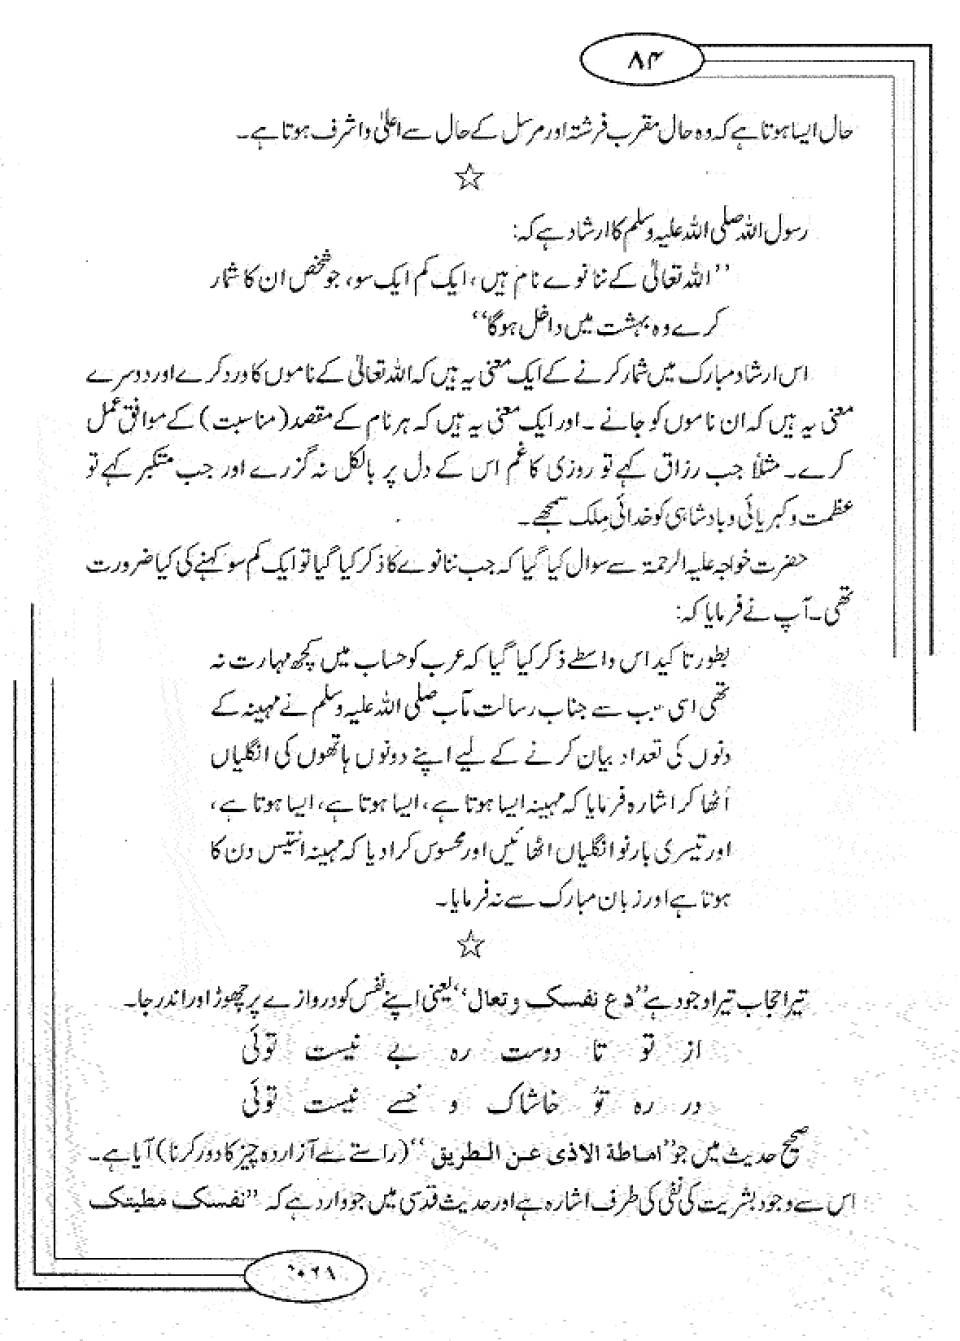 ۸۴
حال ایسا ہوتا ہے کہ وہ حال مقرب فرشتہ اور مرسل کے حال سے اعلیٰ و اشرف ہوتا ہے۔
☆
رسول اللہ صلی اللہ علیہ وسلم کا ارشاد ہے کہ:
’’اللہ تعالیٰ کے ننانوے نام ہیں، ایک کم ایک سو، جو شخص ان کا شمار
کرے وہ بہشت میں داخل ہوگا‘‘
اس ارشاد مبارک میں شمار کرنے کے ایک معنی یہ ہیں کہ اللہ تعالیٰ کے ناموں کا ورد کرے اور دوسرے
معنی یہ ہیں کہ ان ناموں کو جانے۔ اور ایک معنی یہ ہیں کہ ہر نام کے مقصد (مناسبت) کے موافق عمل
کرے۔ مثلاً جب رزاق کہے تو روزی کا غم اس کے دل پر بالکل نہ گزرے اور جب متکبر کہے تو
عظمت و کبریائی و بادشاہی کو خدائی مِلک سمجھے۔
حضرت خواجہ علیہ الرحمۃ سے سوال کیا گیا کہ جب ننانوے کا ذکر کیا گیا تو ایک کم سو کہنے کی کیا ضرورت
تھی۔ آپ نے فرمایا کہ:
بطور تاکید اس واسطے ذکر کیا گیا کہ عرب کو حساب میں کچھ مہارت نہ
تھی اسی سبب سے جناب رسالت مآب صلی اللہ علیہ وسلم نے مہینہ کے
دنوں کی تعداد بیان کرنے کے لیے اپنے دونوں ہاتھوں کی انگلیاں
اُٹھا کر اشارہ فرمایا کہ مہینہ ایسا ہوتا ہے، ایسا ہوتا ہے، ایسا ہوتا ہے،
اور تیسری بار نو انگلیاں اٹھائیں اور محسوس کرا دیا کہ مہینہ انتیس دن کا
ہوتا ہے اور زبان مبارک سے نہ فرمایا۔
☆
تیرا حجاب تیرا وجود ہے ’’دع نفسک و تعال‘‘ یعنی اپنے نفس کو دروازے پر چھوڑ اور اندر جا۔
از تو تا دوست رہ بے نیست توئی
در رہ تو خاشاک و خسے نیست توئی
صحیح حدیث میں جو ’’اماطة الاذی عن الطریق‘‘ (راستے سے آزاردہ چیز کا دور کرنا) آیا ہے۔
اس سے وجود بشریت کی نفی کی طرف اشارہ ہے اور حدیث قدسی میں جو وارد ہے کہ ’’نفسک مطیتک